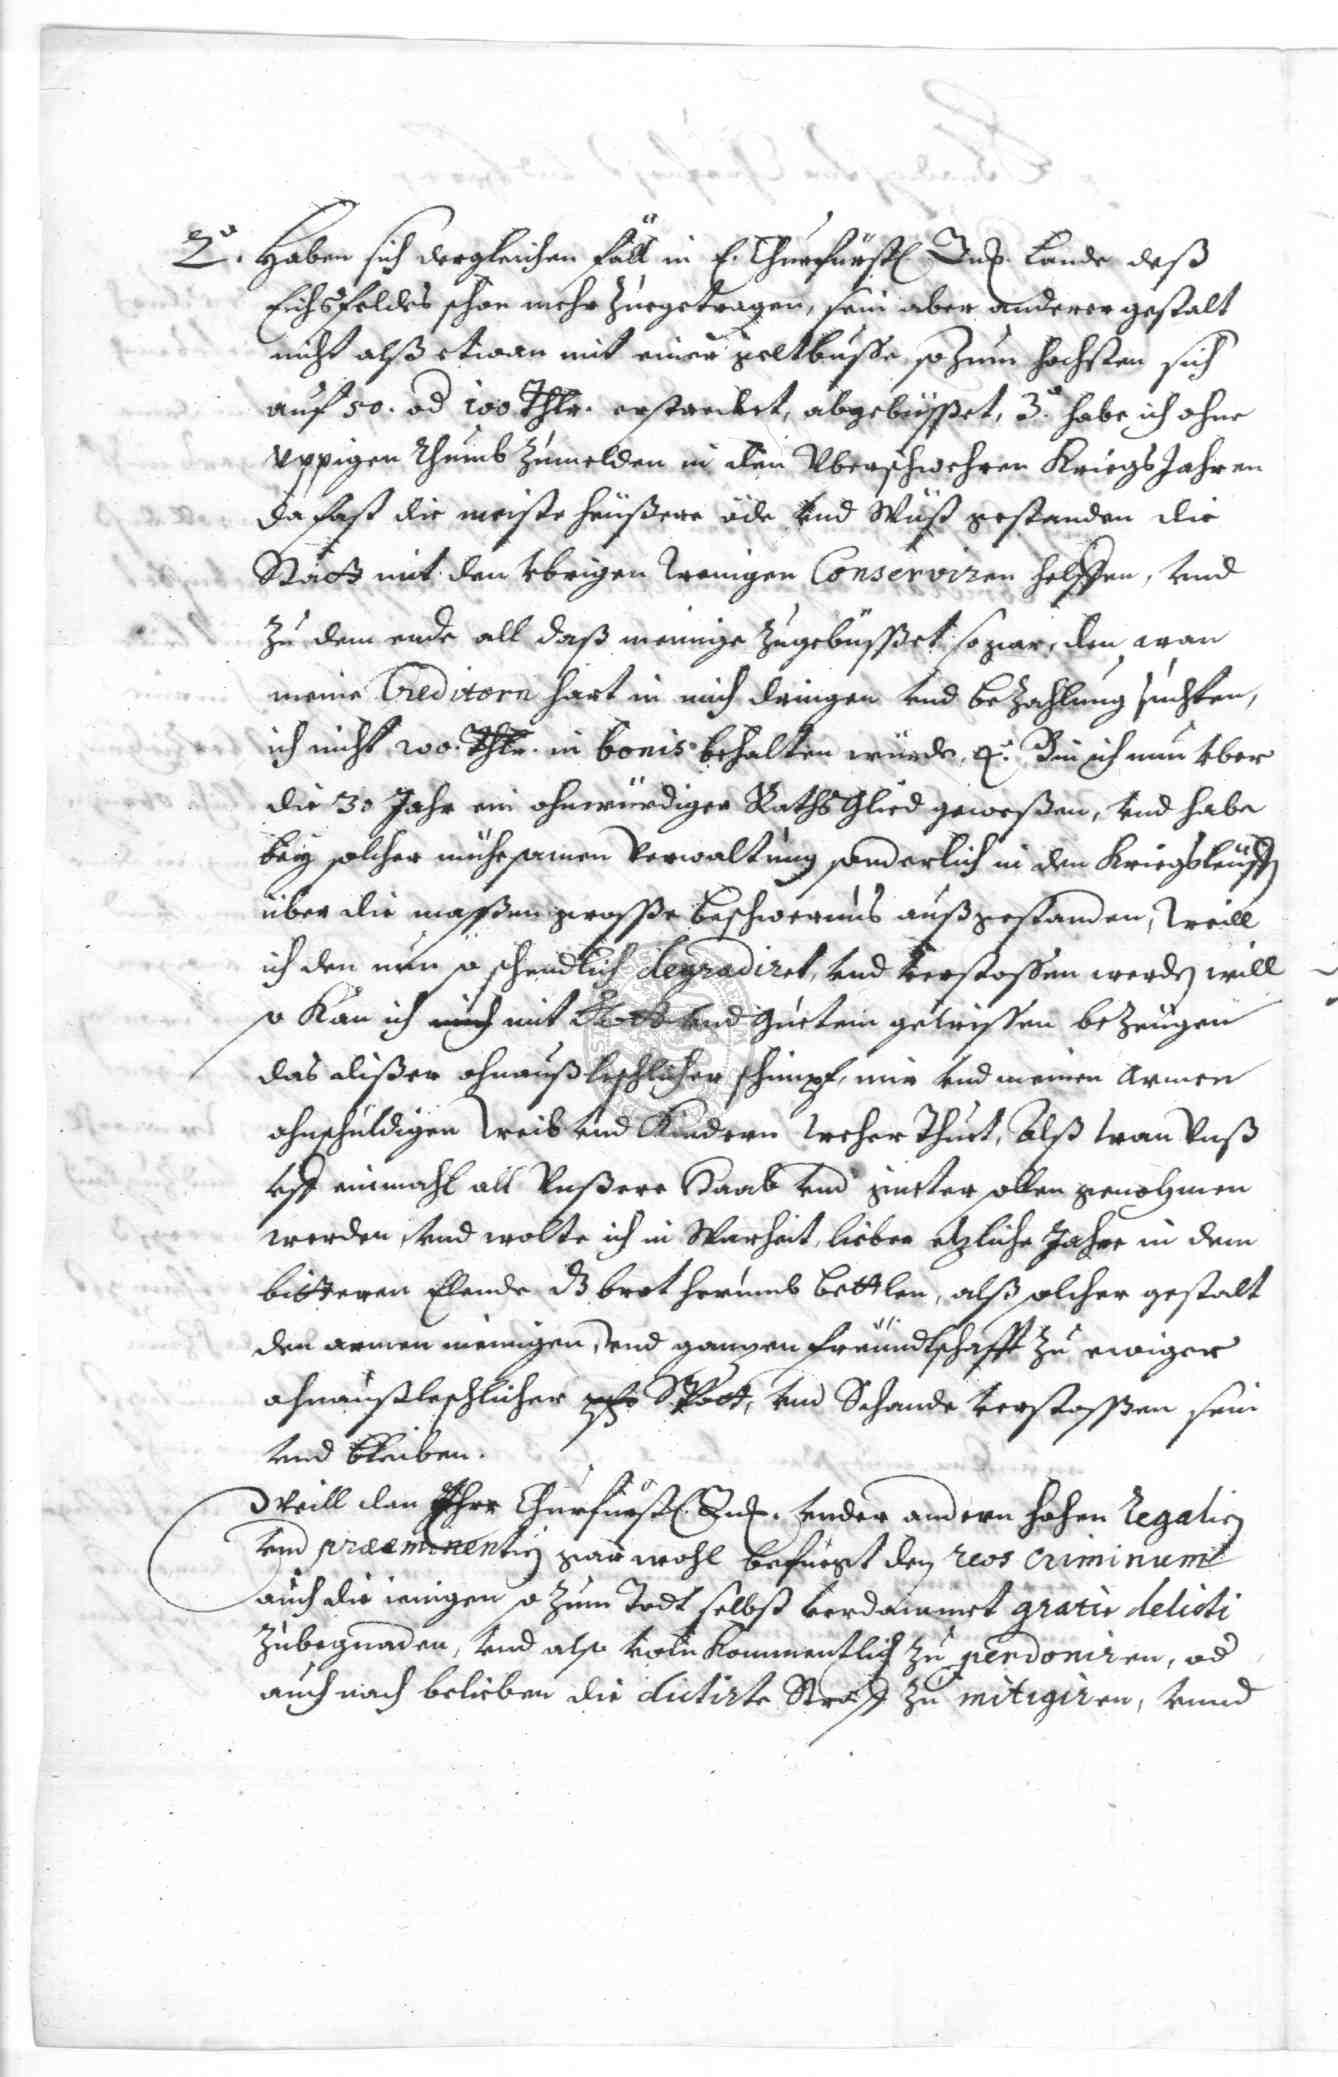 2.o Haben sich dergleichen fäll in E. Churfürstl. Gnd. Lande deß
Eichsfeldes schon mehr zuegetragen, sein aber anderer gestalt
nicht alß etwan mit einer geltbusse so zum hochsten sich
auf 50. od 100 Thlr. erstrecket, abgebüsset, 3.o habe ich ohne
üppigen Rhumb zumelden in den Uberschwehren Kriegs Jahren
da fast die meiste heußere öde vnd Wüst gestanden die
Statt mit den vbrigen Wenigen Conserviren helffen, vnd
zu dem ende all daß meinige zugebüsset so gar, den wan
meine Creditorn hart in mich dringen vnd bezahlung suchten,
ich nicht 200. Thlr. in bonis behalten würde, 4.o Bin ich nun vber
die 30 Jahr ein ohnwürdiger Raths Glied geweßen, vnd habe
bey solcher mühesamen Verwaltung sonderlich in den Kriegsleufften
über die massen grosse beschwernus außgestanden, Weill
ich den nun so schendlich degradiret, vnd verstossen werden will
so Kan ich mich mit Gott vnd Guetem gewissen bezeugen
das dißer ohnaußleschlicher schimpf, mir vnd meinen Armen
ohnschuldigen Weib vnd Kindern weher Thuet, Alß wan Unß
vff einmahl all Unßere Haab vnd güeter sollen genohmen
werden, vnd wolte ich in Warheit, lieber etzliche Jahre in dem
bitteren Elende dz brot herumb bettlen, alß solcher gestalt
den armen meinigen, vnd ganzen freundtschafft zu ewiger
ohnaußleschlicher Spott, vnd Schande verstossen sein
vnd bleiben.
Weill dan Ihre Churfürstl. Gnd. vnder andern hohen Regalien
vnd præeminentien gar wohl befuegt den reos criminum
auch die ienigen so zum Todt selbst verdammet gratiè delicti
zubegnaden, vnd also volnkommentlich zu perdoniren, od
auch nach belieben die dictirte Straff zu mitigiren, vnnd